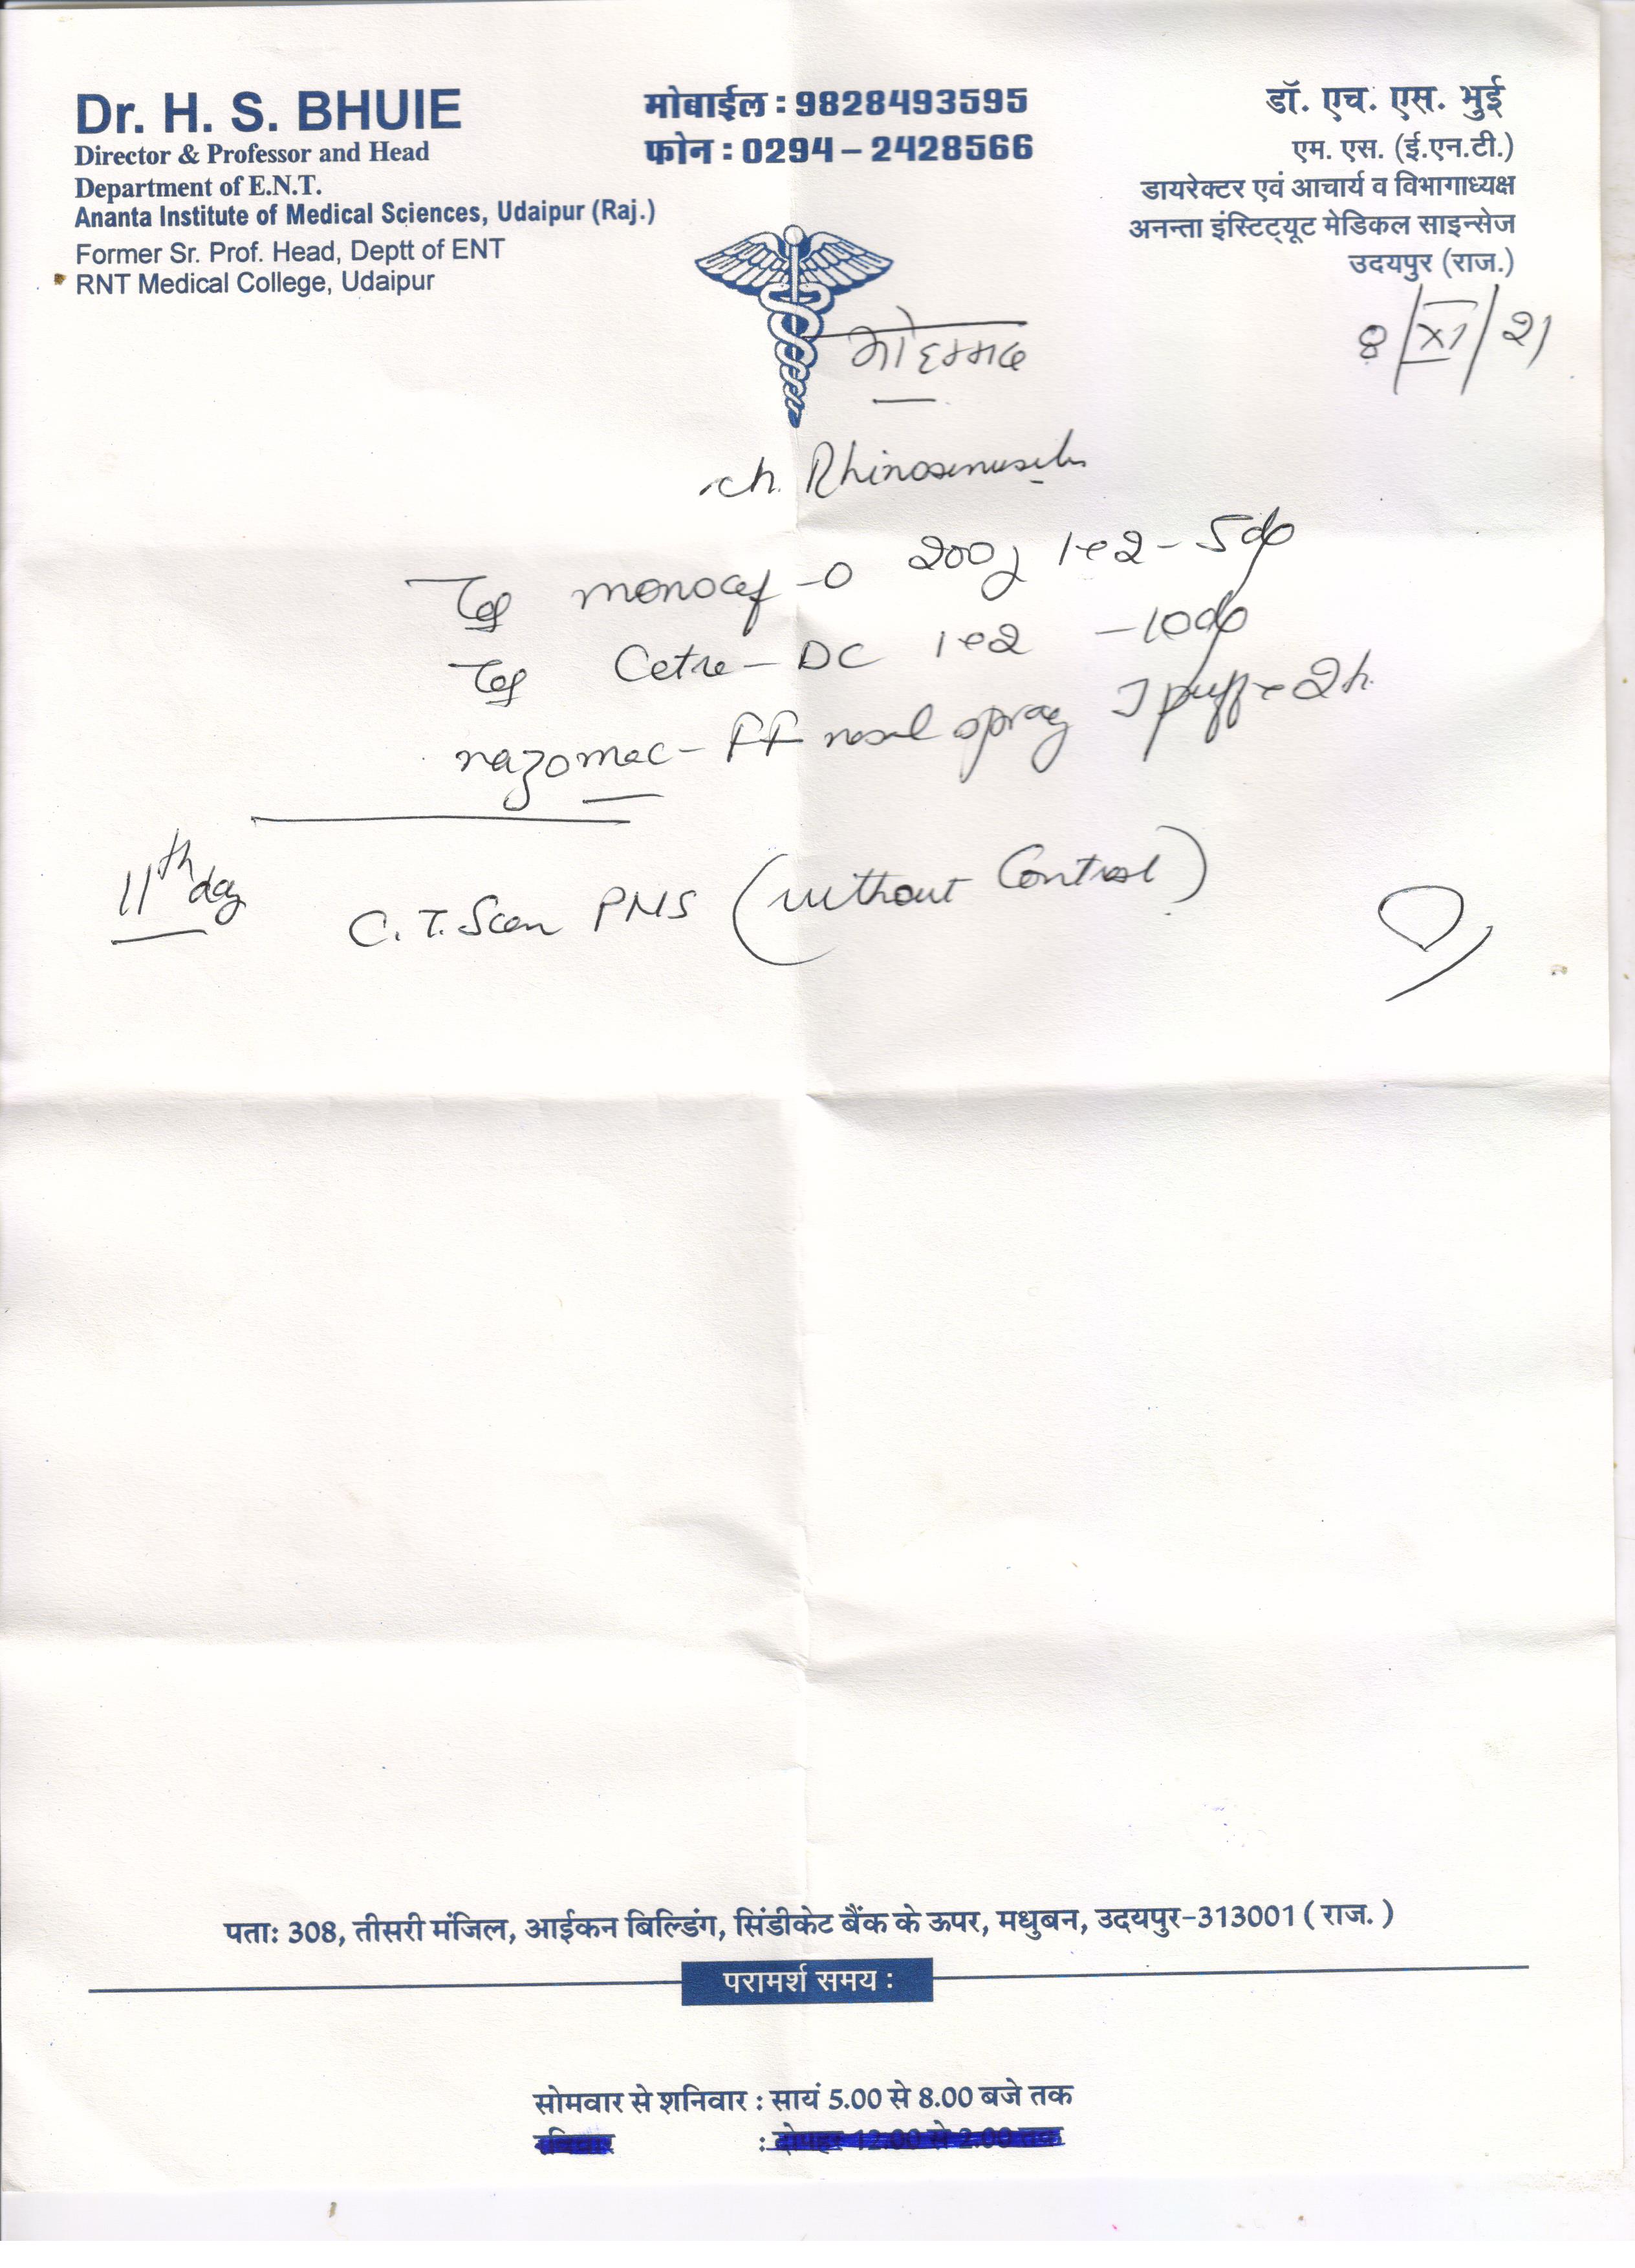 Dr. H. S. BHUIE
Director & Professor and Head
Department of E.N.T.
Ananta Institute of Medical Sciences, Udaipur (Raj.)
Former Sr. Prof. Head, Deptt of ENT
RNT Medical College, Udaipur
मोबाईल : 9828493595
फोन : 0294 – 2428566
डॉ. एच. एस. भुई
एम. एस. (ई.एन.टी.)
डायरेक्टर एवं आचार्य व विभागाध्यक्ष
अनन्ता इंस्टिट्यूट मेडिकल साइन्सेज
उदयपुर (राज.)
8/XI/21
मोहम्मद
ch. Rhinosinusitis
monocef - O 200
Cetre - DC
nazomac - FF nasal spray puff
11th day C. T. Scan PNS (without Contrast)
पताः 308, तीसरी मंजिल, आईकन बिल्डिंग, सिंडीकेट बैंक के ऊपर, मधुबन, उदयपुर-313001 ( राज. )
परामर्श समय :
सोमवार से शनिवार : सायं 5.00 से 8.00 बजे तक
रविवार : दोपहर 12.00 से 2.00 तक